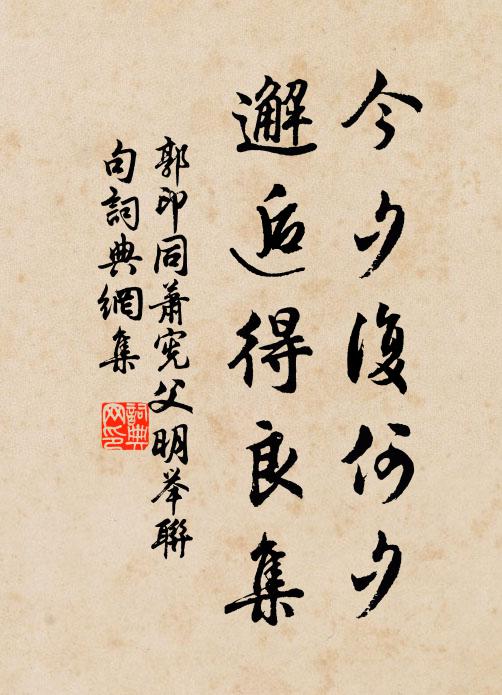 今夕復何夕
邂逅得良集
郭印同蕭憲父明举聯
句詞典網集
詞典
网印